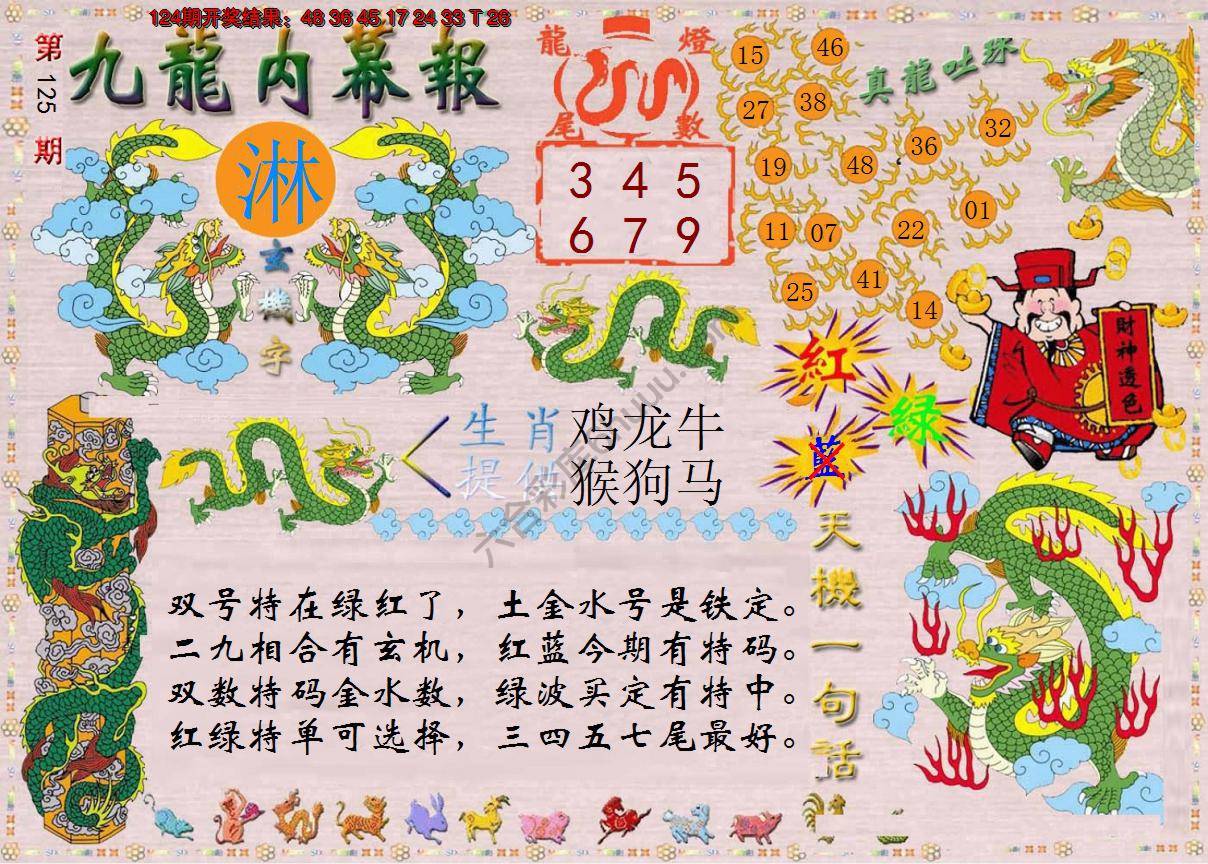 124期开奖结果：48 36 45 17 24 33 T 26
第125期
九龍内幕報
淋
玄機字
龍燈尾數
3 4 5
6 7 9
真龍吐珠
15 46
27 38
36 32
19 48
01
11 07 22
25 41
14
財神透色
紅
綠
藍
生肖 鸡龙牛
提供 猴狗马
天機一句話
双号特在绿红了，土金水号是铁定。
二九相合有玄机，红蓝今期有特码。
双数特码金水数，绿波买定有特中。
红绿特单可选择，三四五七尾最好。